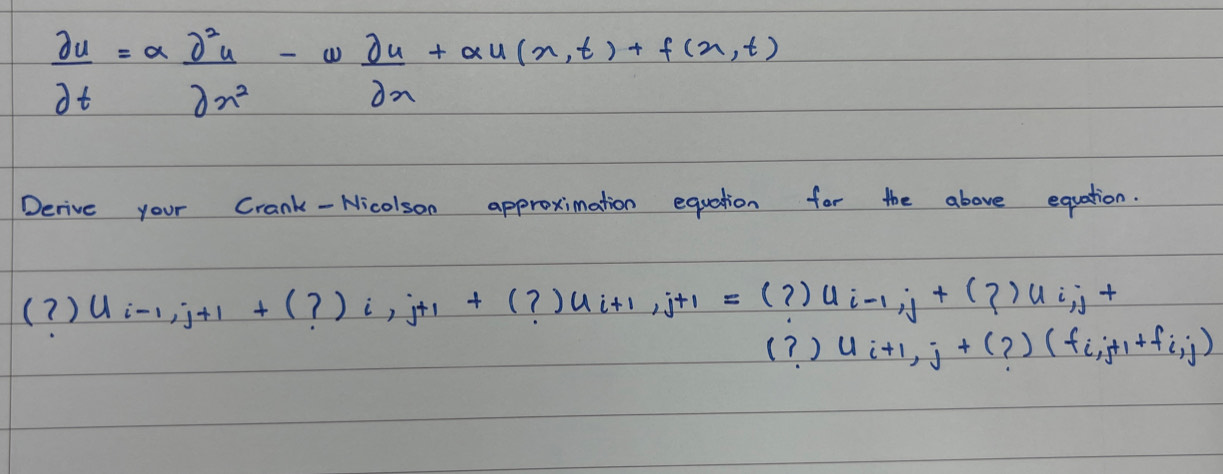 ∂u/∂t = α ∂²u/∂x² - ω ∂u/∂x + αu(x,t) + f(x,t)
Derive your Crank-Nicolson approximation equation for the above equation.
(?)u i-1,j+1 + (?) i,j+1 + (?)u i+1,j+1 = (?)u i-1,j + (?)u i,j +
(?) u i+1,j + (?)(f i,j+1 + f i,j)